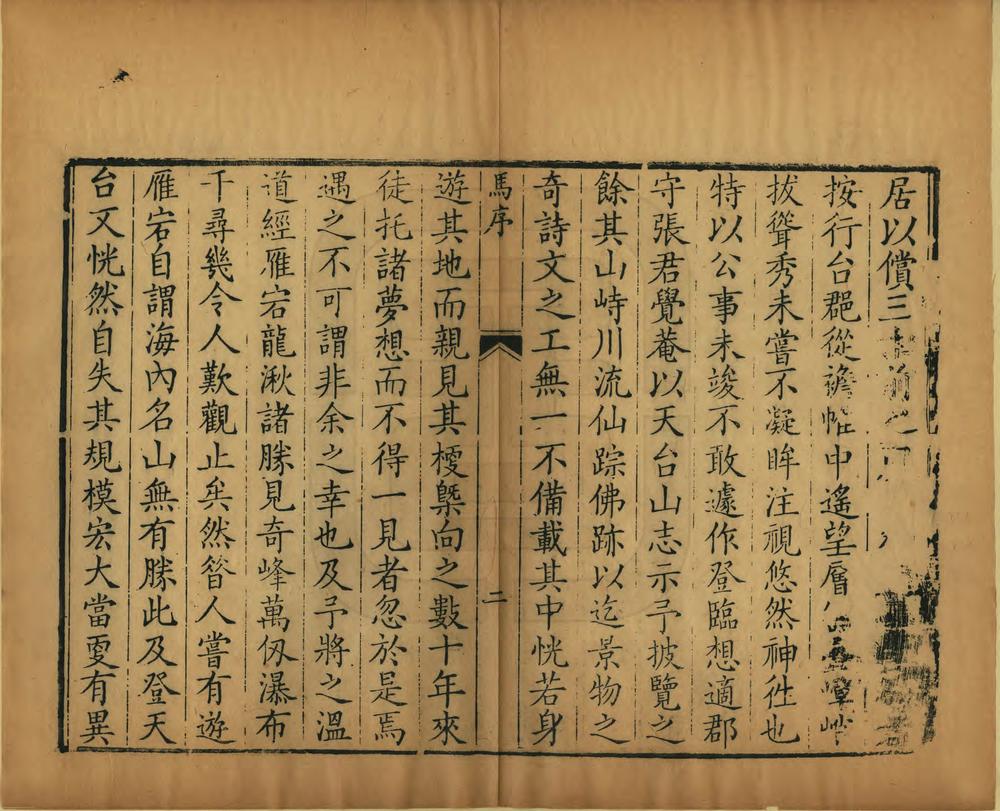 居以償三
按行台郡從襜帷中遙望層
拔聳秀未嘗不凝眸注視悠然神徃也
特以公事未竣不敢遽作登臨想適郡
守張君覺菴以天台山志示予披覽之
餘其山峙川流仙踪佛跡以迄景物之
奇詩文之工無一不備載其中恍若身
馬序
二
遊其地而親見其槾槩向之數十年來
徒托諸夢想而不得一見者忽於是焉
遇之不可謂非余之幸也及予將之溫
道經雁宕龍湫諸勝見奇峰萬仭瀑布
千尋幾令人歎觀止矣然昝人嘗有遊
雁宕自謂海內名山無有勝此及登天
台又恍然自失其規模宏大當更有異